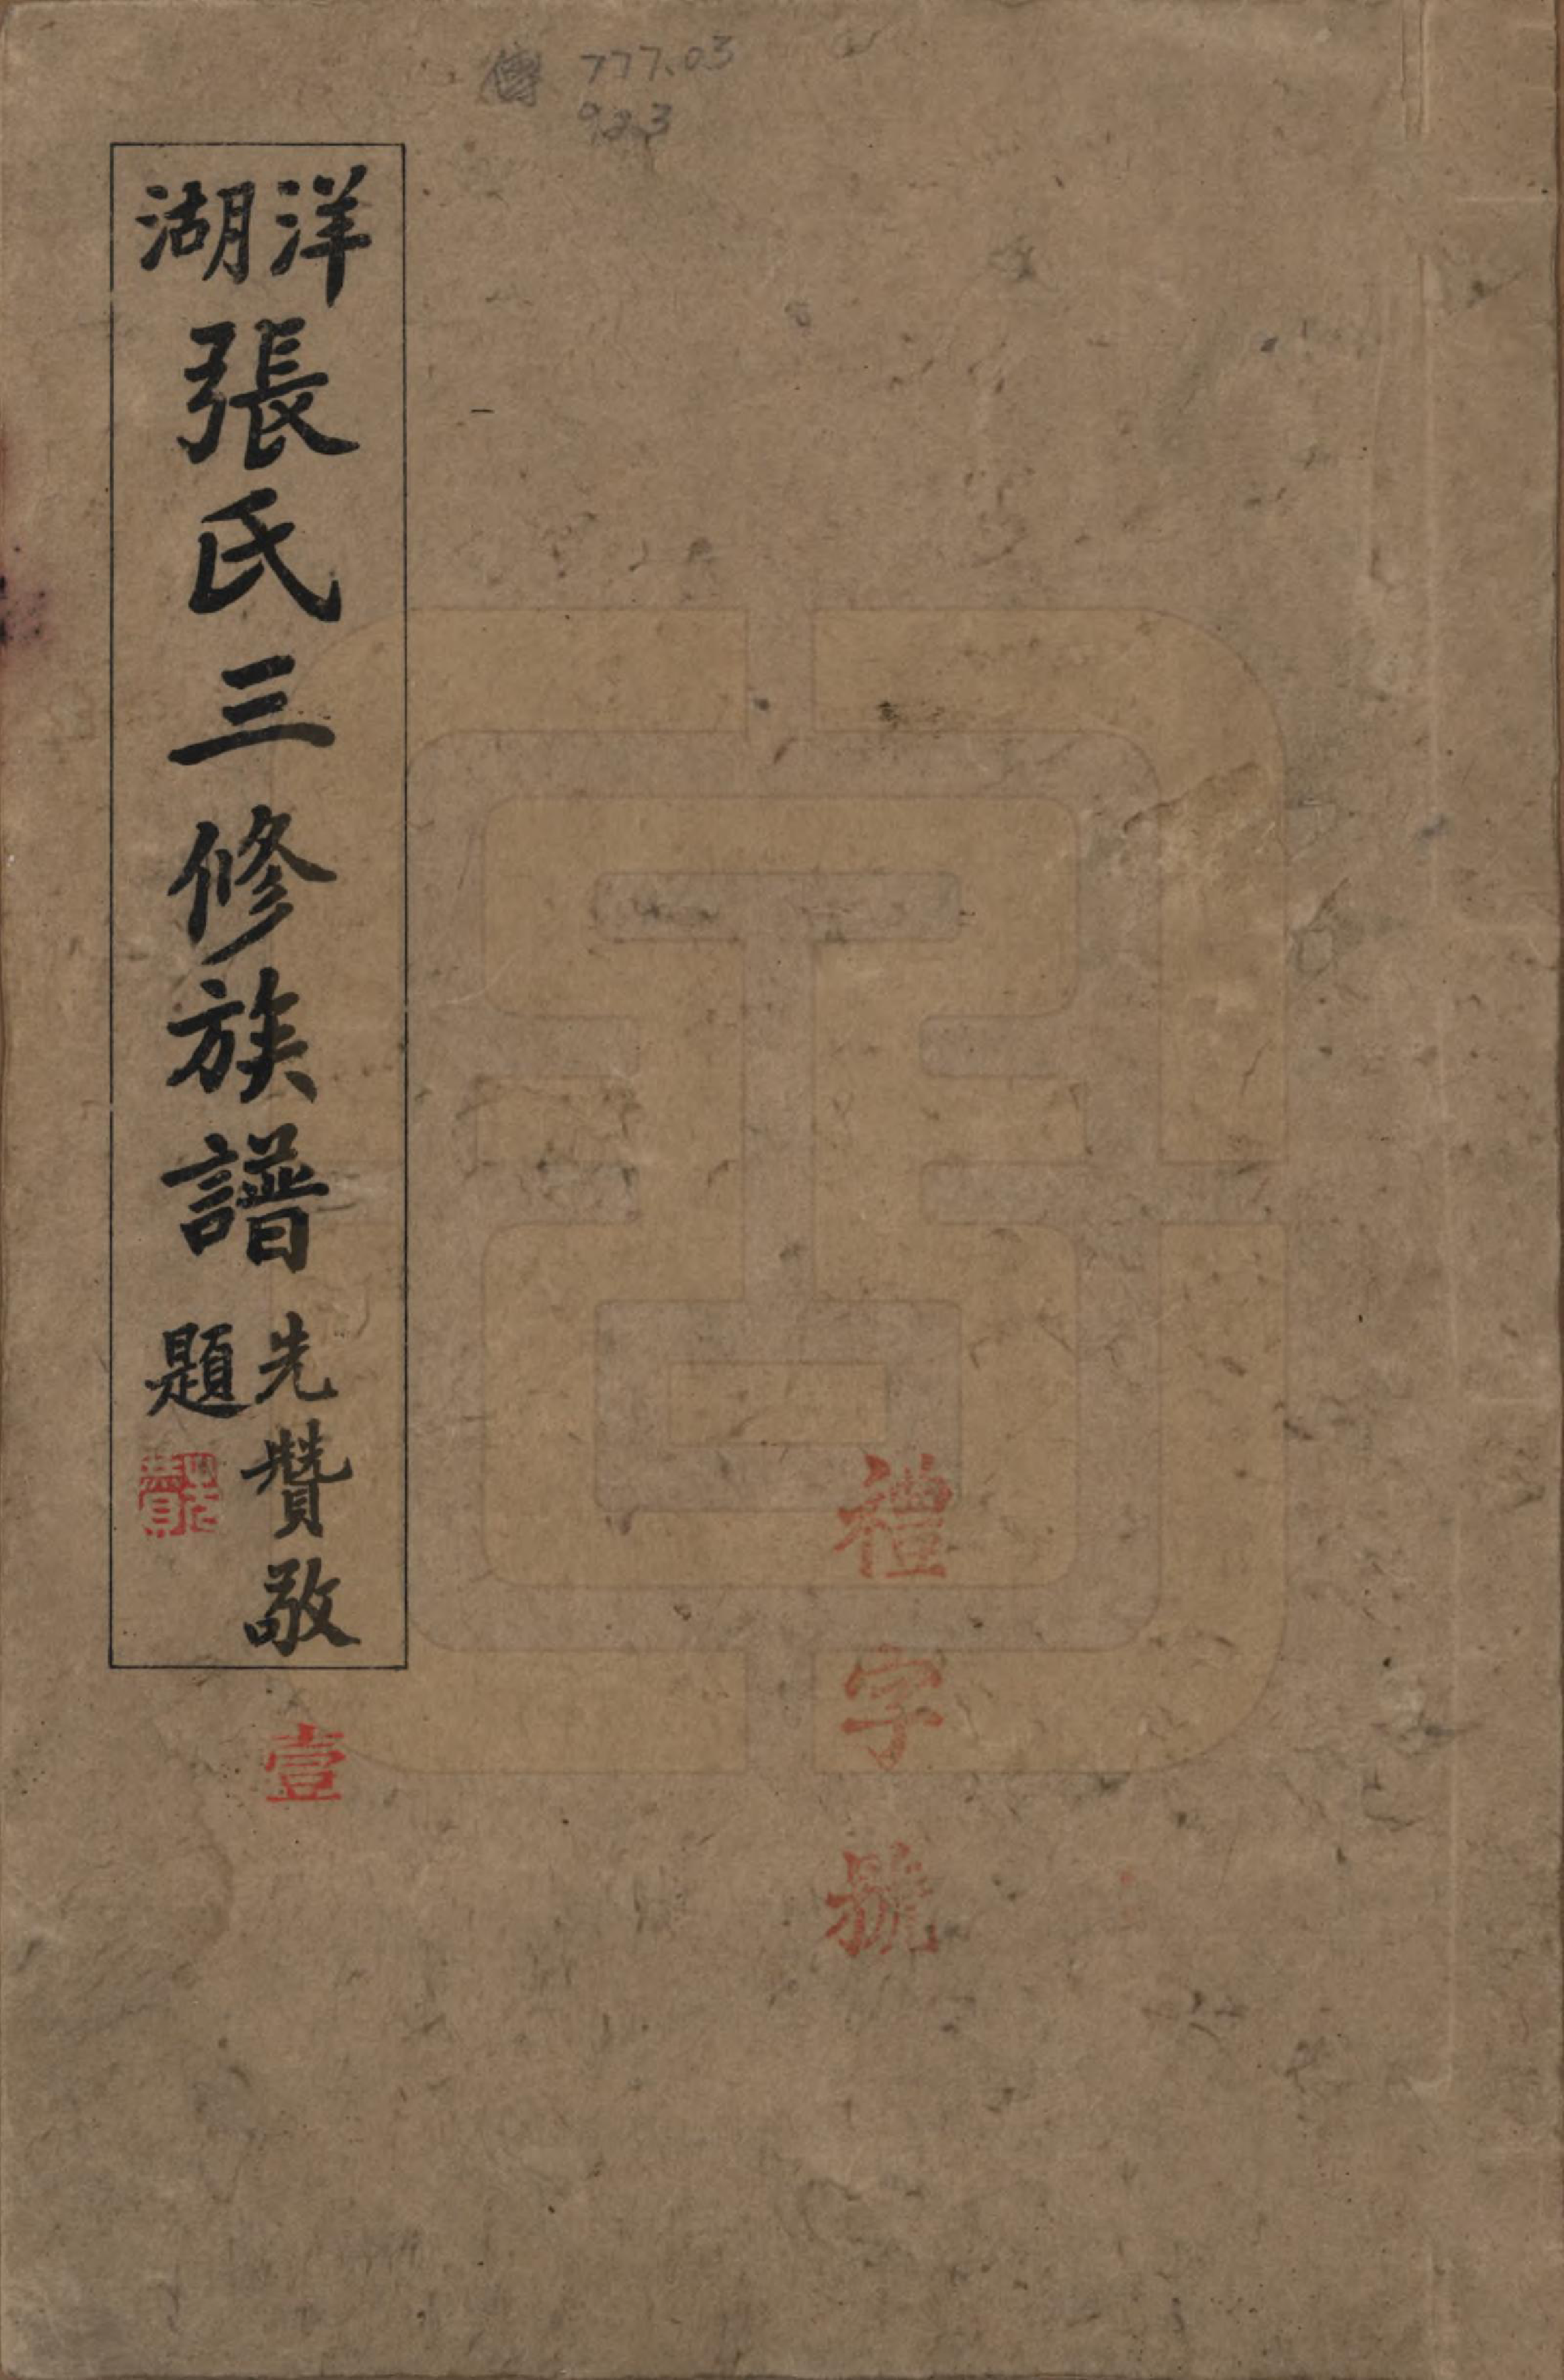 傳 777.03
923
洋湖張氏三修族譜
先贊敬題
壹
禮字號